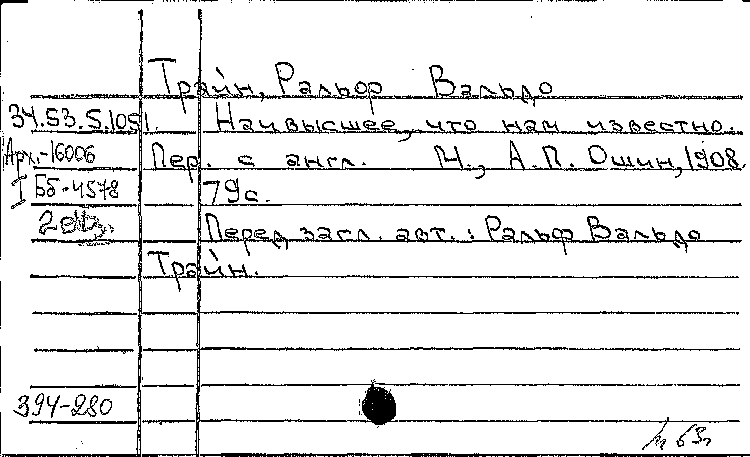 Трайн, Ральф Вальдо
34.53.5.1051. Наивысшее, что нам известно.
Арх.-16006 Пер. с англ. М., А.П. Ошин, 1908.
I Бб-4578 79с.
Перед загл. авт.: Ральф Вальдо
Трайн.
394-280